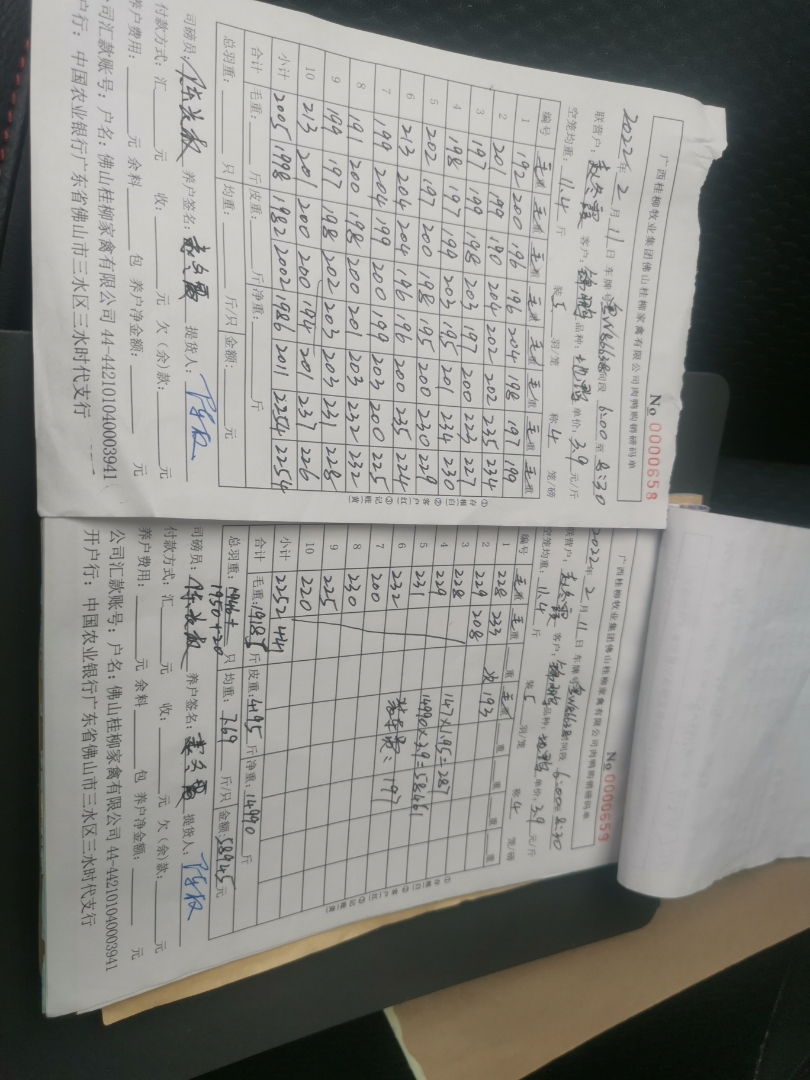 广西桂柳牧业集团佛山桂柳家禽有限公司肉鸭购销磅码单
No 0000658
2022年 2 月 11 日 车牌号: 时间段 6:00 至 8:30
联营户: 客户: 品种: 单价: 3.9 元/斤
空笼均重: 11.4 斤 装 5 羽/笼 称 4 笼/磅
编号 毛重 毛重 毛重 毛重 毛重 毛重 毛重 毛重
1 192 200 196 196 204 198 197 199
2 201 199 190 204 202 202 235 234
3 197 199 198 203 197 200 223 227
4 198 197 199 203 195 201 234 230
5 202 197 200 198 195 200 230 229
6 213 204 204 196 196 200 235 224
7 199 204 199 200 199 203 200 225
8 191 200 198 200 201 203 232 232
9 199 197 198 202 203 203 231 228
10 213 201 200 200 194 201 237 226
小计 2005 1998 1982 2002 1986 2011 2254 2254
合计 毛重: 斤 皮重: 斤 净重: 斤
总羽重: 只 均重: 斤/只 金额: 元
①存根(白) ②客户(红) ③记账(黄)
司磅员: 养户签名: 提货人:
付款方式: 汇 元 收: 元 欠(余)款: 元
养户费用: 元 余料 包 养户净金额: 元
公司汇款账号: 户名: 佛山桂柳家禽有限公司 44-442101040003941
户行: 中国农业银行广东省佛山市三水区三水时代支行
广西桂柳牧业集团佛山桂柳家禽有限公司肉鸭购销磅码单
No 0000659
2022年 2 月 11 日 车牌号: 时间段 6:00 至 8:30
联营户: 客户: 品种: 单价: 3.9 元/斤
空笼均重: 11.4 斤 装 5 羽/笼 称 4 笼/磅
编号 毛重 毛重 重 毛重 重 重 重 重
1 228 233 次 193
2 229 208
3 228
4 229 147×1.95=287
5 231 14990×3.9=58461
6 232 装车费: 197
7 200
8 230
9 225
10 220
小计 2252 441
合计 毛重: 19185 斤 皮重: 4195 斤 净重: 14990 斤
总羽重: 1946+ 只 均重: 7.69 斤/只 金额: 58945 元
1950+20
①存根(白) ②客户(红) ③记账(黄)
司磅员: 养户签名: 提货人:
付款方式: 汇 元 收: 元 欠(余)款: 元
养户费用: 元 余料 包 养户净金额: 元
公司汇款账号: 户名: 佛山桂柳家禽有限公司 44-442101040003941
开户行: 中国农业银行广东省佛山市三水区三水时代支行